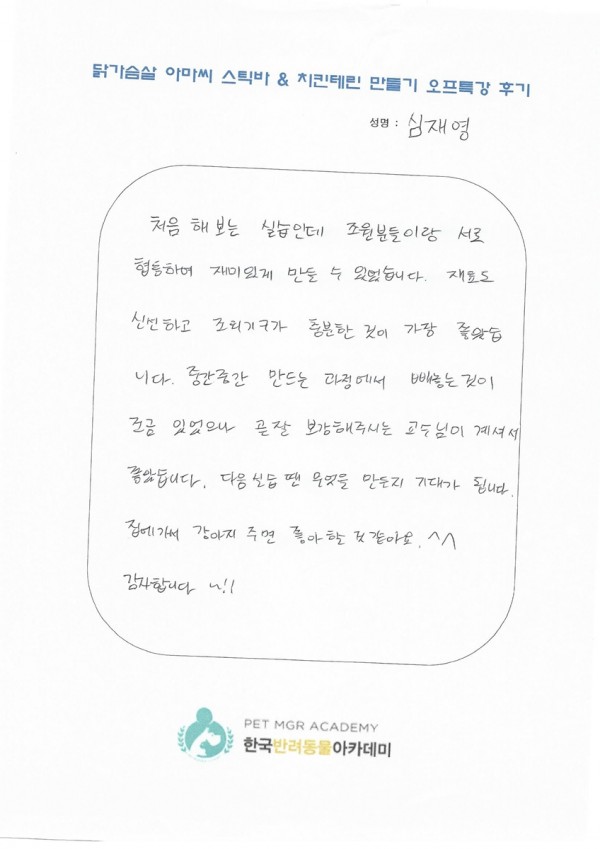 닭가슴살 아마씨 스틱바 & 치킨테린 만들기 오프특강 후기
성명 : 심재영
처음 해보는 실습인데 조원분들이랑 서로
협동하여 재미있게 만들 수 있었습니다. 재료도
신선하고 조리기구가 충분한 것이 가장 좋았습
니다. 중간중간 만드는 과정에서 빼놓는것이
조금 있었으나 곧잘 보강해주시는 교수님이 계셔서
좋았습니다. 다음실습 땐 무엇을 만든지 기대가 됩니다.
집에가서 강아지 주면 좋아할 것같아요. ^^
감사합니다 ~!!
PET MGR ACADEMY
한국반려동물아카데미